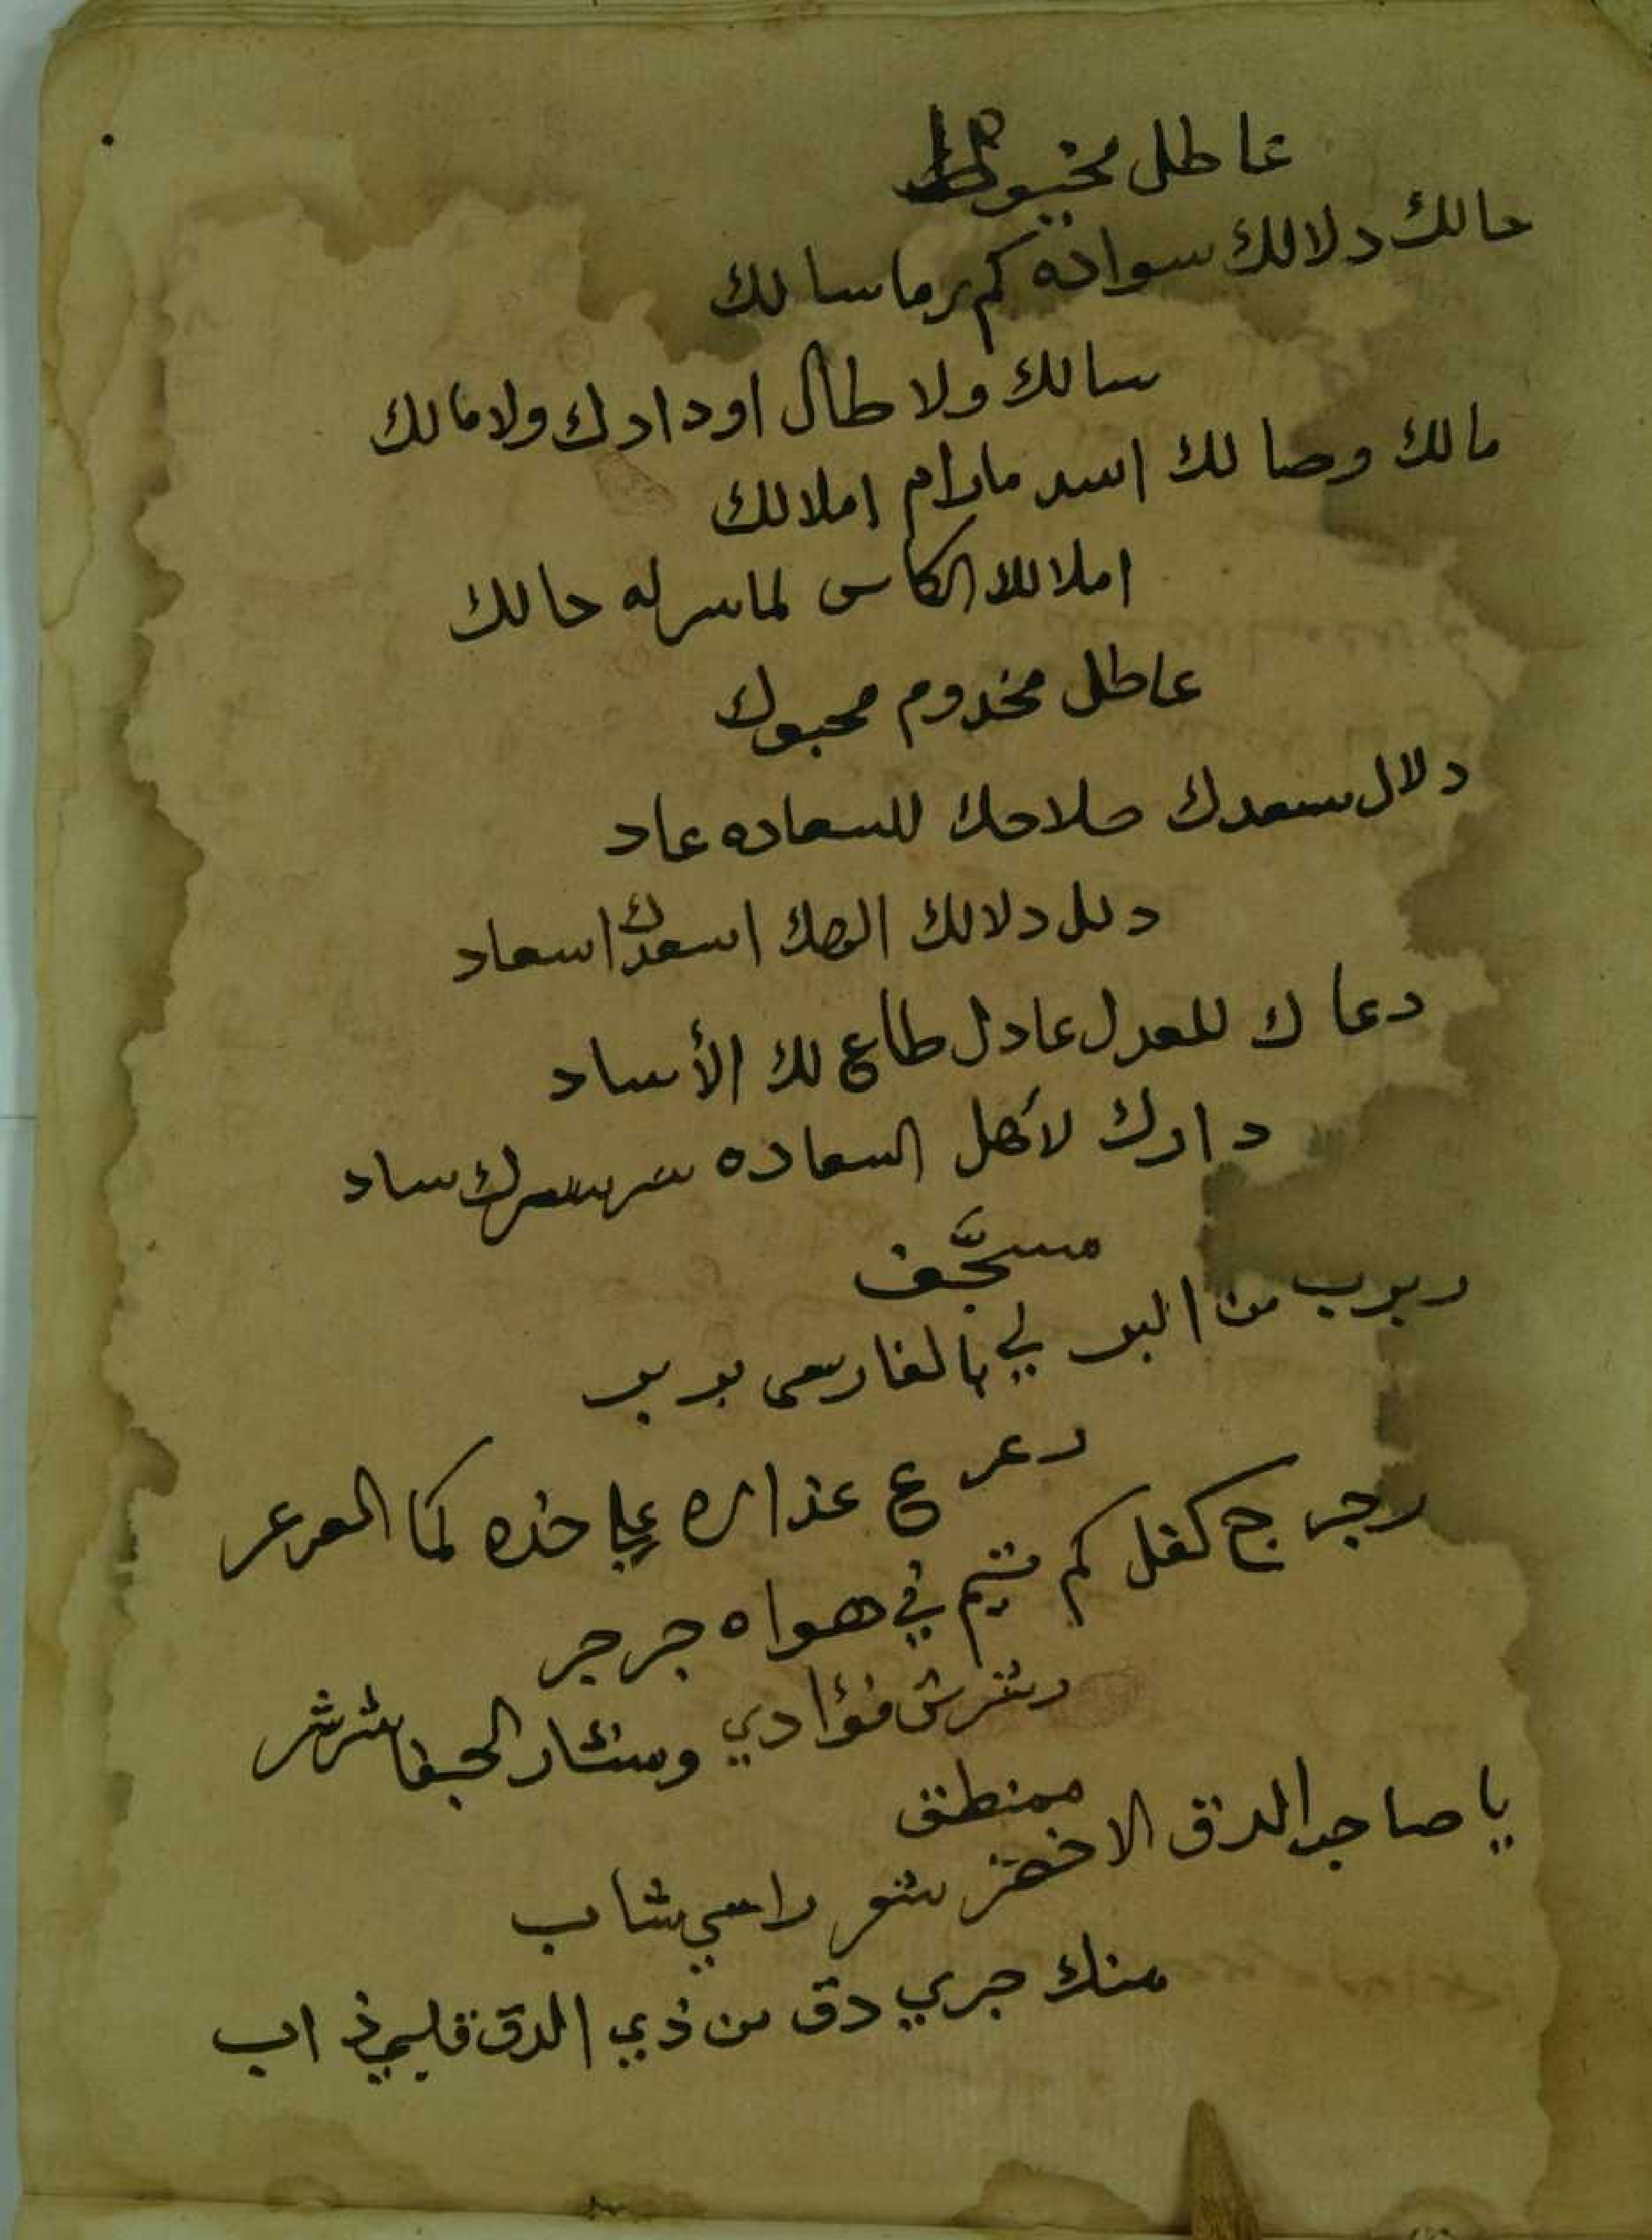 عاطل مخبوط
حالك دلالك سواده كم رما سالك
سالك ولا طال اودادك ولا مالك
مالك وصالك اسد مارام املالك
املا للك الكاس لما سر له حالك
عاطل مخدوم محبوك
دلال سعدك صلاحك للسعاده عاد
دلل دلالك الهك اسعدك اسعاد
دعاك للعدل عادل طاع لك الأساد
دارك لأهل السعاده سر سرك ساد
مسجّف
ربرب من البر لي بالفارسي بربر
رعرع عذاره علي خده كما العرعر
رجرج كفل كم متيم في هواه جرجر
رشرش فؤادي وشار الجفا شرشر
ممنطق
يا صاحب الدق الاخضر شعر راسي شاب
منك جري دق من ذي الدق قلبي ذاب